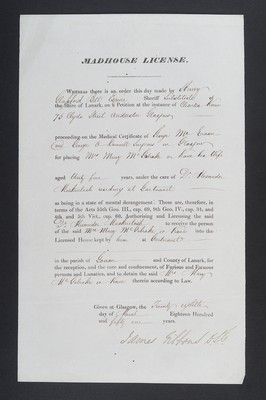 MADHOUSE LICENSE.
WHEREAS there is an order this day made by Henry
Glassford Bell Esquire Sheriff Substitute of
the Shire of Lanark, on a Petition at the instance of Charles
73 Clyde Street Anderston Glasgow
proceeding on the Medical Certificate of George Mc
and George Surgeons in Glasgow
for placing Mrs Mary Mc or his Wife
aged thirty five years, under the care of Dr Alexander
residing at
as being in a state of mental derangement: These are, therefore, in
terms of the Acts 55th Geo. III., cap. 69, 9th Geo. IV., cap. 34, and
4th and 5th Vict., cap. 60, Authorising and Licensing the said
Dr Alexander to receive the person
of the said Mrs Mary Mc or into the
Licensed House kept by him at
in the parish of Govan and County of Lanark, for
the reception, and the care and confinement, of Furious and Fatuous
persons and Lunatics, and to detain the said Mrs Mary
Mc or therein according to Law.
Given at Glasgow, the Twenty eighth
day of March Eighteen Hundred
and fifty one years.
James Gibson